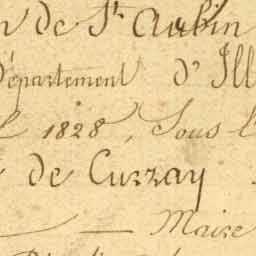 de St. Aubin
Département d'Ill
1828, Sous l
de Curzay
Maire